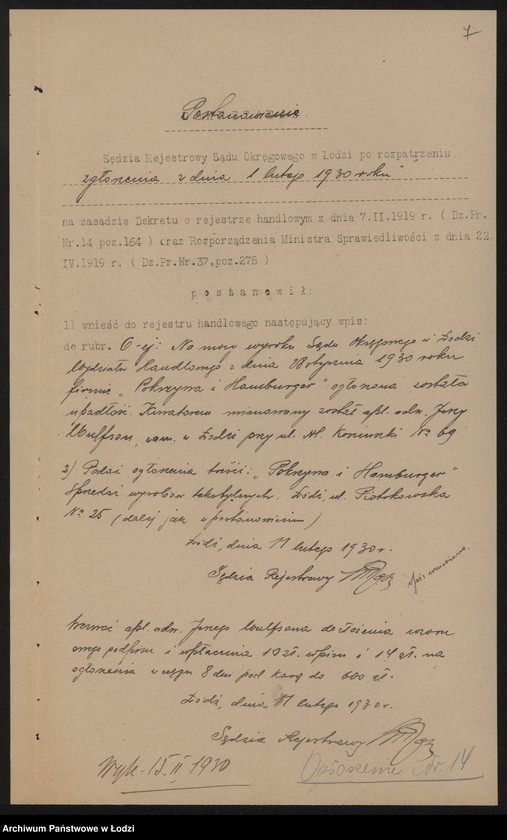 7
Postanowienie
Sędzia Rejestrowy Sądu Okręgowego w Łodzi po rozpatrzeniu
zgłoszenia z dnia 1 lutego 1930 roku
na zasadzie Dekretu o rejestrze handlowym z dnia 7.II.1919 r. ( Dz.Pr.
Nr.14 poz.164 ) oraz Rozporządzenia Ministra Sprawiedliwości z dnia 22
IV.1919 r. ( Dz.Pr.Nr.37,poz.278 )
p o s t a n o w i ł:
1) wnieść do rejestru handlowego następujący wpis:
do rubr. 6-ej: Na mocy wyroku Sądu Okręgowego w Łodzi
Wydziału Handlowego z dnia 28 stycznia 1930 roku
firmie „Pokrzywa i Hamburger" ogłoszona została
upadłość. Kuratorem mianowany został apl. adw. Jerzy
Wulfson, zam. w Łodzi przy ul. Al. Kościuszki № 69
2) Podać ogłoszenia treści: „Pokrzywa i Hamburger"
Sprzedaż wyrobów tekstylnych. Łódź, ul. Piotrkowska
№ 25 (dalej jak w postanowieniu)
Łódź, dnia 11 lutego 1930 r.
Sędzia Rejestrowy
Wezwać apl. adw. Jerzego Wulfsona do złożenia wzoru
swego podpisu i wpłacenia 10 zł. wpisu i 14 zł. na
ogłoszenia w ciągu 8 dni pod karą do 600 zł.
Łódź, dnia 11 lutego 1930 r.
Sędzia Rejestrowy
Wyk. 15.II 1930
Ogłoszenie str. 14
Archiwum Państwowe w Łodzi